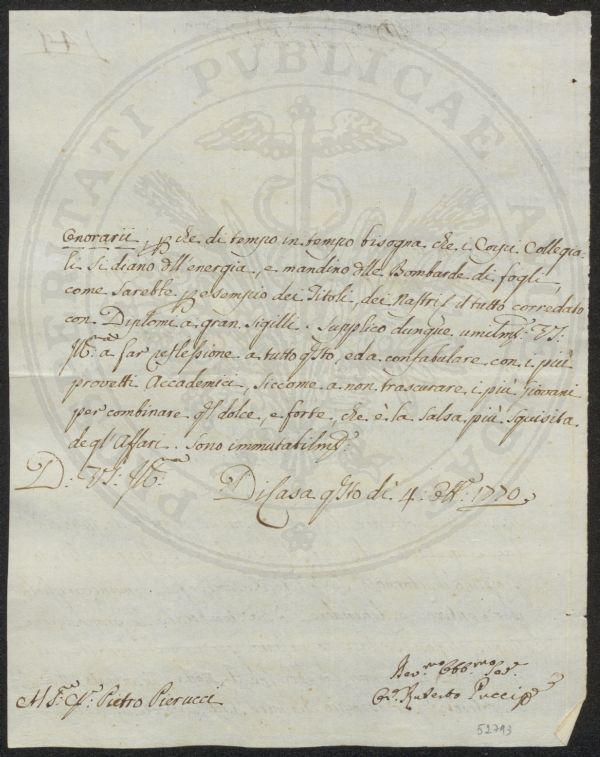 Onorarii, pche di tempo in tempo bisogna che i Corpi Collegia-
li si diano dell'energia, e mandino delle Bombarde di fogli,
come sarebbe p esempio dei Titoli, dei Nastri, il tutto corredato
con Diplomi a gran sigilli. Supplico dunque umilmte: VS:
Illma a far reflessione a tutto qsto, e da confabulare con i più
provetti Accademici, siccome a non trascurare i più giovani
per combinare ql dolce, e forte, che è la salsa più squisita
degl'Affari. Sono immutabilmte
D: VS: Illma
Di Casa qsto dì 4. 1770.
Pietro Pierucci
Devmo Obbmo
Ruberto Pucci
52793
PROSPERITATI PUBLICAE